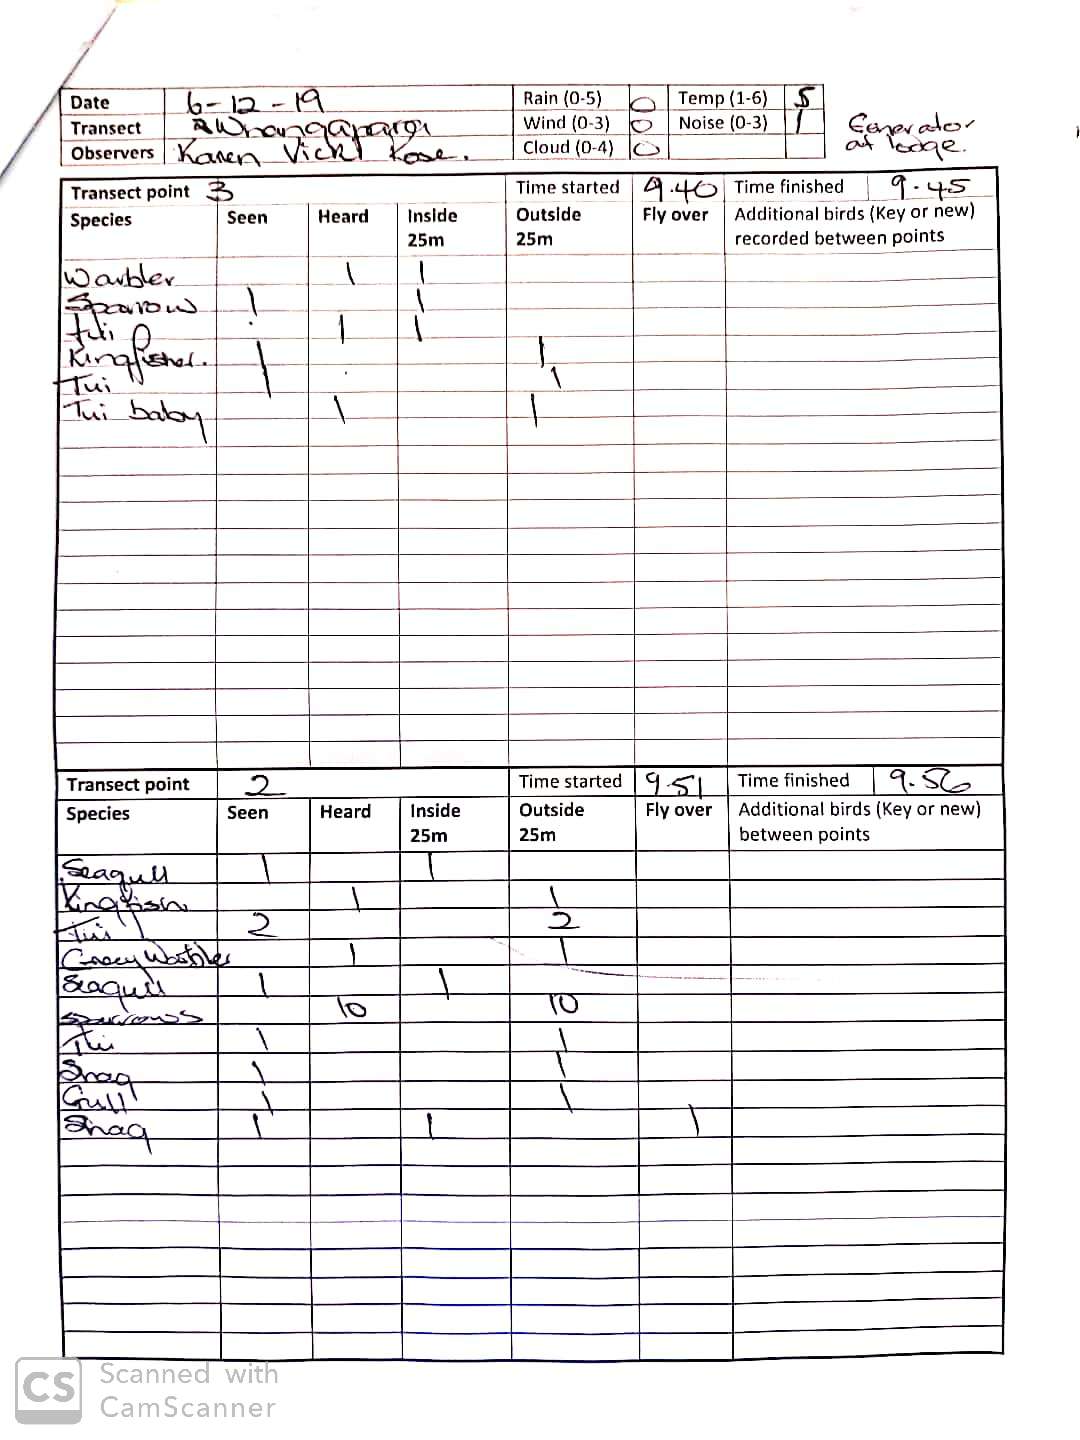 Date 6-12-19 Rain (0-5) 0 Temp (1-6) 5
Transect 2 Whangaparapara Wind (0-3) 0 Noise (0-3) 1 Generator
Observers Karen Vicki Rose. Cloud (0-4) 0 at lodge.
Transect point 3 Time started 9.40 Time finished 9.45
Species Seen Heard Inside 25m Outside 25m Fly over Additional birds (Key or new) recorded between points
Warbler 1 1
Sparow 1 1
tui 1 1
Kingfisher. 1 1
Tui 1 1
Tui baby 1 1
Transect point 2 Time started 9.51 Time finished 9.56
Species Seen Heard Inside 25m Outside 25m Fly over Additional birds (Key or new) between points
Seagull 1 1
Kingfish 1 1
Tui 2 2
Grey Warbler 1 1
Seagull 1 1
Sparrows 10 10
Tui 1 1
Shag 1 1
Gull 1 1
Shag 1 1 1
CS Scanned with
CamScanner